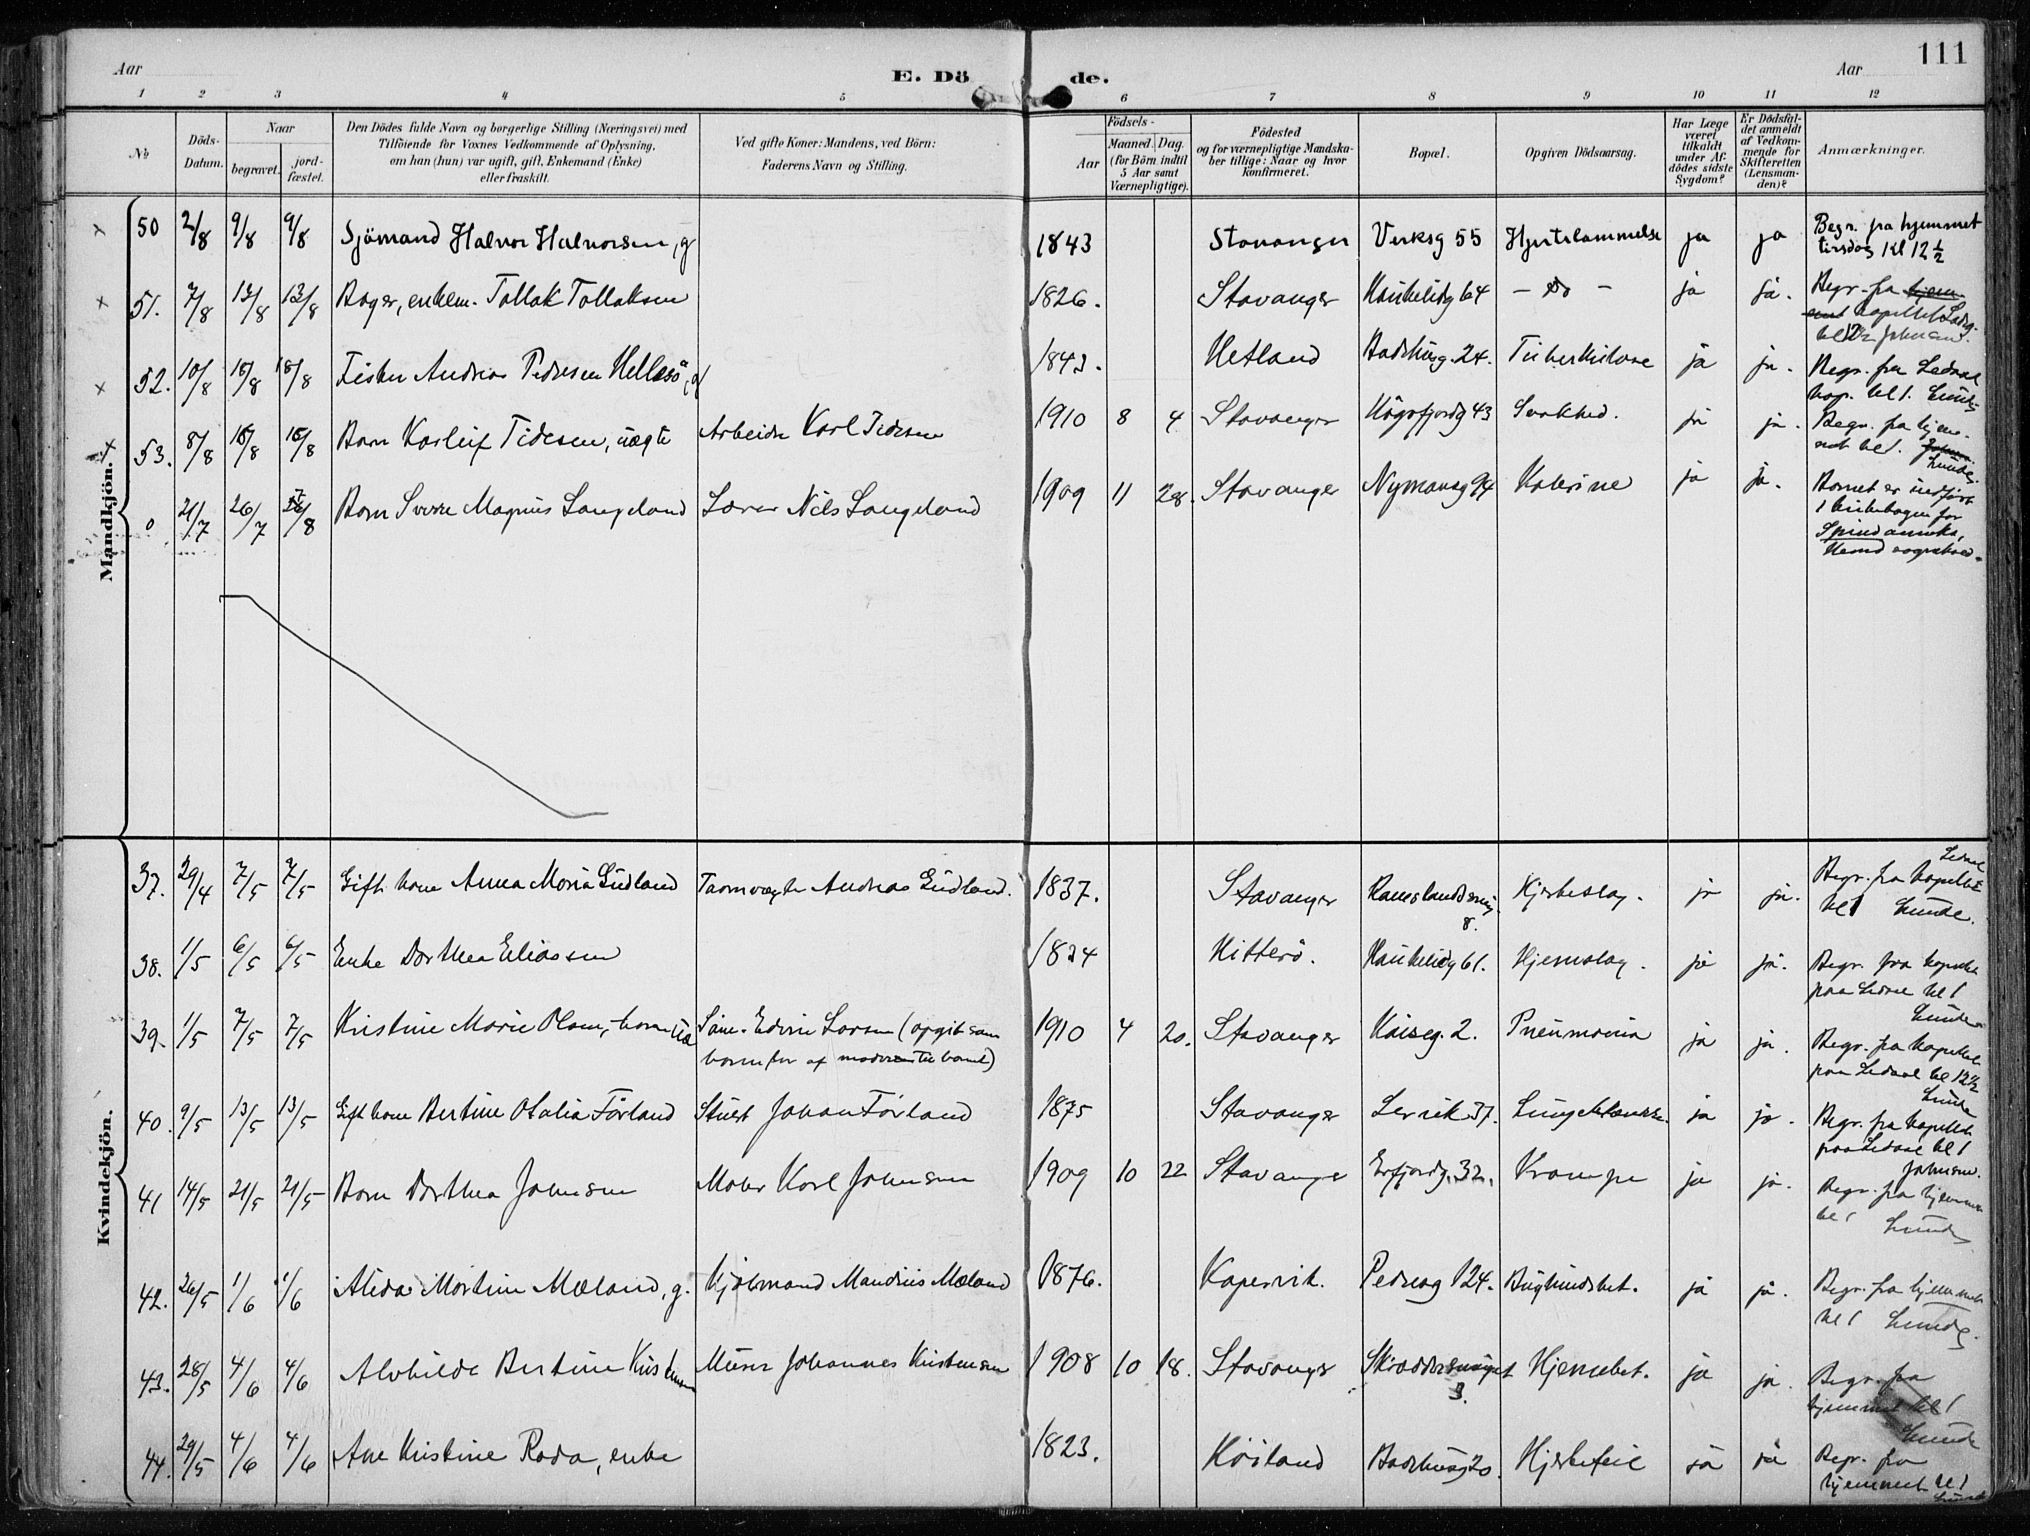 Aar
E. Dö de.
Aar
111
1 2 3 4 5 6 7 8 9 10 11 12
No
Döds-Datum.
Naar
begravet.
jord-fæstet.
Den Dödes fulde Navn og borgerlige Stilling (Næringsvei) med
Tilföiende for Voxnes Vedkommende af Oplysning,
om han (hun) var ugift, gift, Enkemand (Enke)
eller fraskilt.
Ved gifte Koner: Mandens, ved Börn:
Faderens Navn og Stilling.
Födsels-
Aar
Maaned. Dag.
(for Börn indtil
5 Aar samt
Værnepligtige).
Födested
og for værnepligtige Mandska-
ber tillige: Naar og hvor
konfirmeret.
Bopæl.
Opgiven Dödsaarsag.
Har Læge
været
tilkaldt
under Af-
dödes sidste
Sygdom?
Er Dödsfal-
det anmeldt
af Vedkom-
mende for
Skifteretten
(Lensman-
den)?
Anmærkninger.
Mandkjön.
50 2/8 9/8 9/8 Sjömand Halvor Halvorsen, g 1843 Stavanger Verksg 55 Hjertelammelse ja ja Begr. fra hjemmet
tirsdag kl 12 1/2
51. 7/8 13/8 13/8 Bager, enkem. Tollak Tollaksen 1826. Stavanger Haukelidg 64 – Do – ja ja. Begr. fra
kapellet
52. 10/8 18/8 18/8 Fisker Andreas Pedersen Hellesö, g 1843. Hetland Badehusg. 24. Tuberkulose ja ja. Begr. fra Ledaal
kap. kl 1. Lunde
53. 8/8 16/8 16/8 Barn Karleif Tidesen, uægte Arbeider Karl Tidesen 1910 8 4 Stavanger Högsfjordg 43 Svakhed. ja ja. Begr. fra hjem-
met kl 1.
Lunde.
0 21/7 26/7 /8 Barn Sverre Magnus Langeland Lærer Nils Langeland 1909 11 28. Stavanger Nymansg 94 Kolerine ja ja. Barnet er indfört
i kirkebogen for
Spind anneks,
Kvindekjön.
37. 29/4 7/5 7/5 Gift kone Anna Maria Gudland Taarnvægter Andreas Gudland. 1837. Stavanger Ramslandssmug
8. Hjerteslag. ja ja. Begr. fra kapellet Ledaal
kl 1 Lunde.
38. 1/5 6/5 6/5 Enke Dorthea Eliassen 1834 Hitterö. Haukelidg 61. Hjerneslag. ja ja. Begr. fra kapellet
paa Ledaal kl 1
Lunde
39. 1/5 7/5 7/5 Kristine Marie Olsen, – barn uæ Söm. Edvin Larsen (opgit som
barnefar af moderen til barnet) 1910 4 20. Stavanger Kaiseg. 2. Pneumonia ja ja. Begr. fra kapellet
paa Ledaal kl 12 1/2
Lunde
40. 9/5 13/5 13/5 Gift kone Bertine Otalia Förland Stuert Johan Förland 1875 Stavanger Lervik 37. ja ja. Begr. fra kapellet
paa Ledaal kl 1
Johnsen.
41 14/5 21/5 21/5 Barn Dorthea Johnsen Maler Karl Johnsen 1909 10 22 Stavanger Erfjordg. 32. Krampe ja ja. Begr. fra hjemmet
kl 1 Lunde
42. 26/5 1/6 1/6 Alida Martine Mæland, g. Kjöbmand Mandius Mæland 1876. Kopervik. Pedersg 124. Bughindebet. ja ja. Begr. fra hjemmet
kl 1 Lunde.
43. 28/5 4/6 4/6 Alvhilde Bertine Kristensen Murer Johannes Kristensen 1908 10 18. Stavanger Skraddersmuget
3. Hjernebet. ja ja. Begr. fra
hjemmet kl 1
Lunde
44. 29/5 4/6 4/6 Ane Kristine Rada, enke 1823. Höiland Badehusg 20. Hjertefeil ja ja Begr. fra
hjemmet kl 1
Lunde